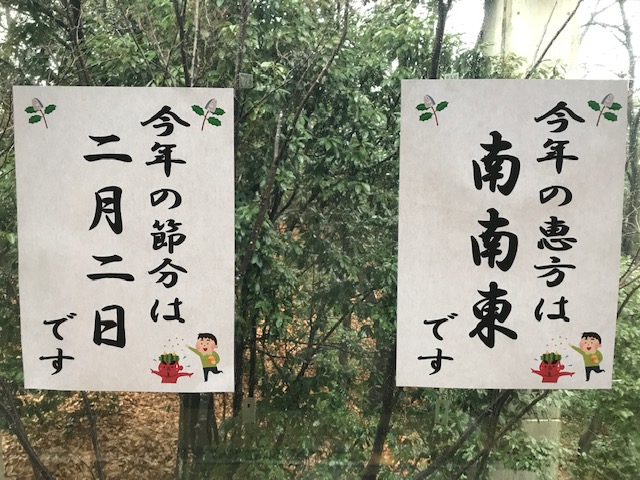 今年の節分は
二月二日
です
今年の恵方は
南南東
です